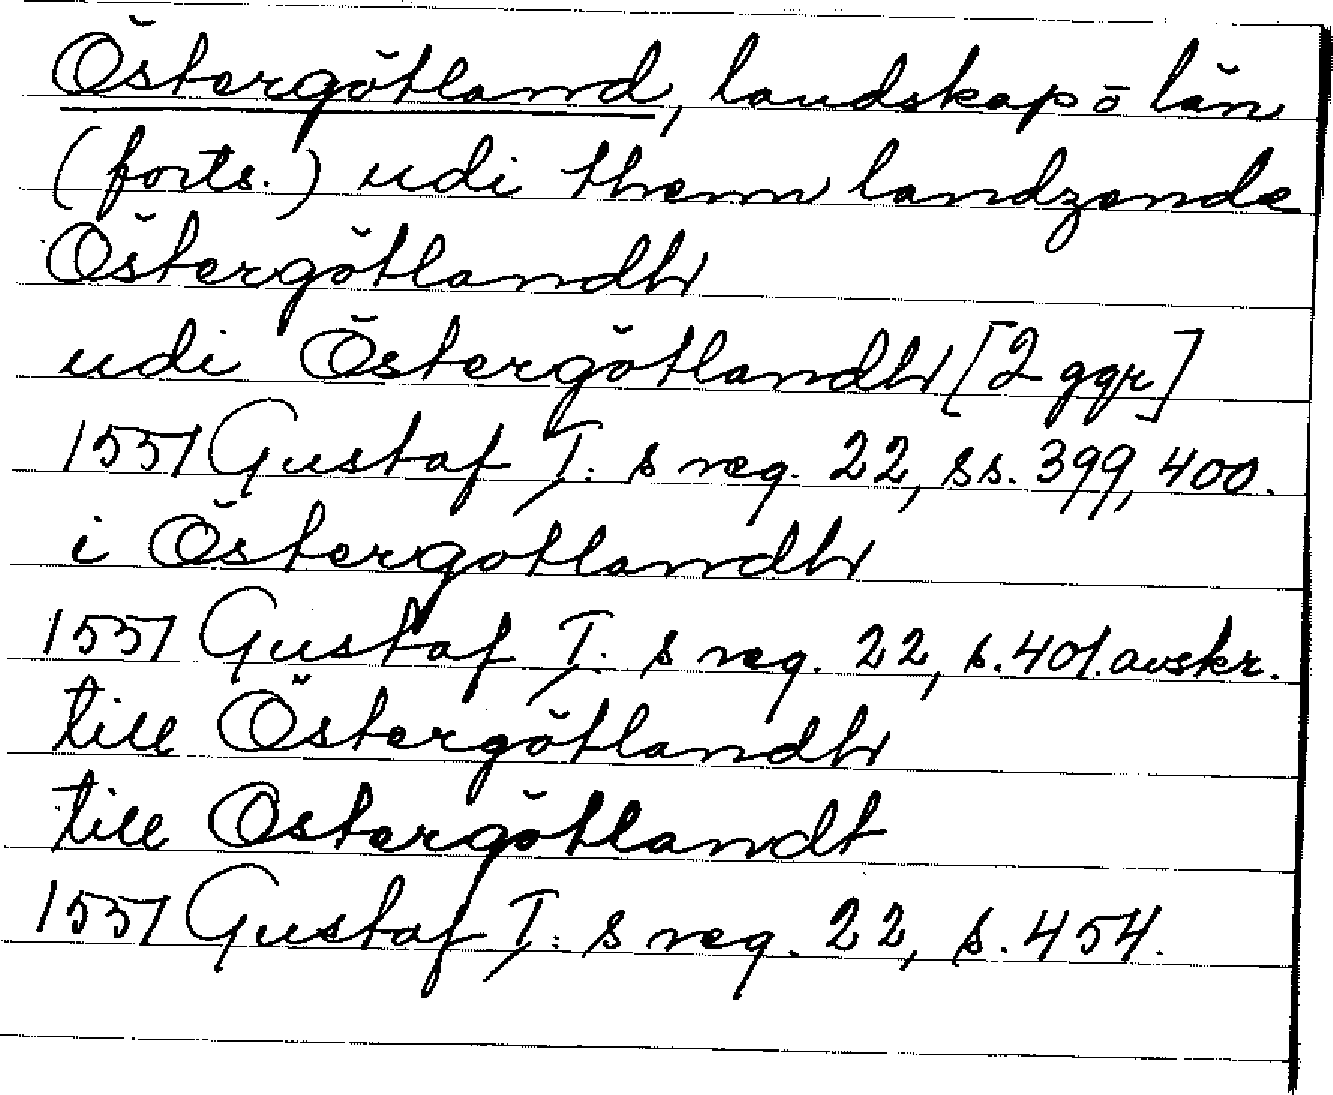 Östergötland, landskap o län
(forts.) udi them landzende
Östergötlandh
udi Östergötlandh [2 ggr]
1551 Gustaf I:s reg. 22, ss. 399, 400.
i Östergotlandh
1551 Gustaf I:s reg. 22, s. 401. avskr.
till Östergötlandh
till Ostergötlandt
1551 Gustaf I:s reg. 22, s. 454.